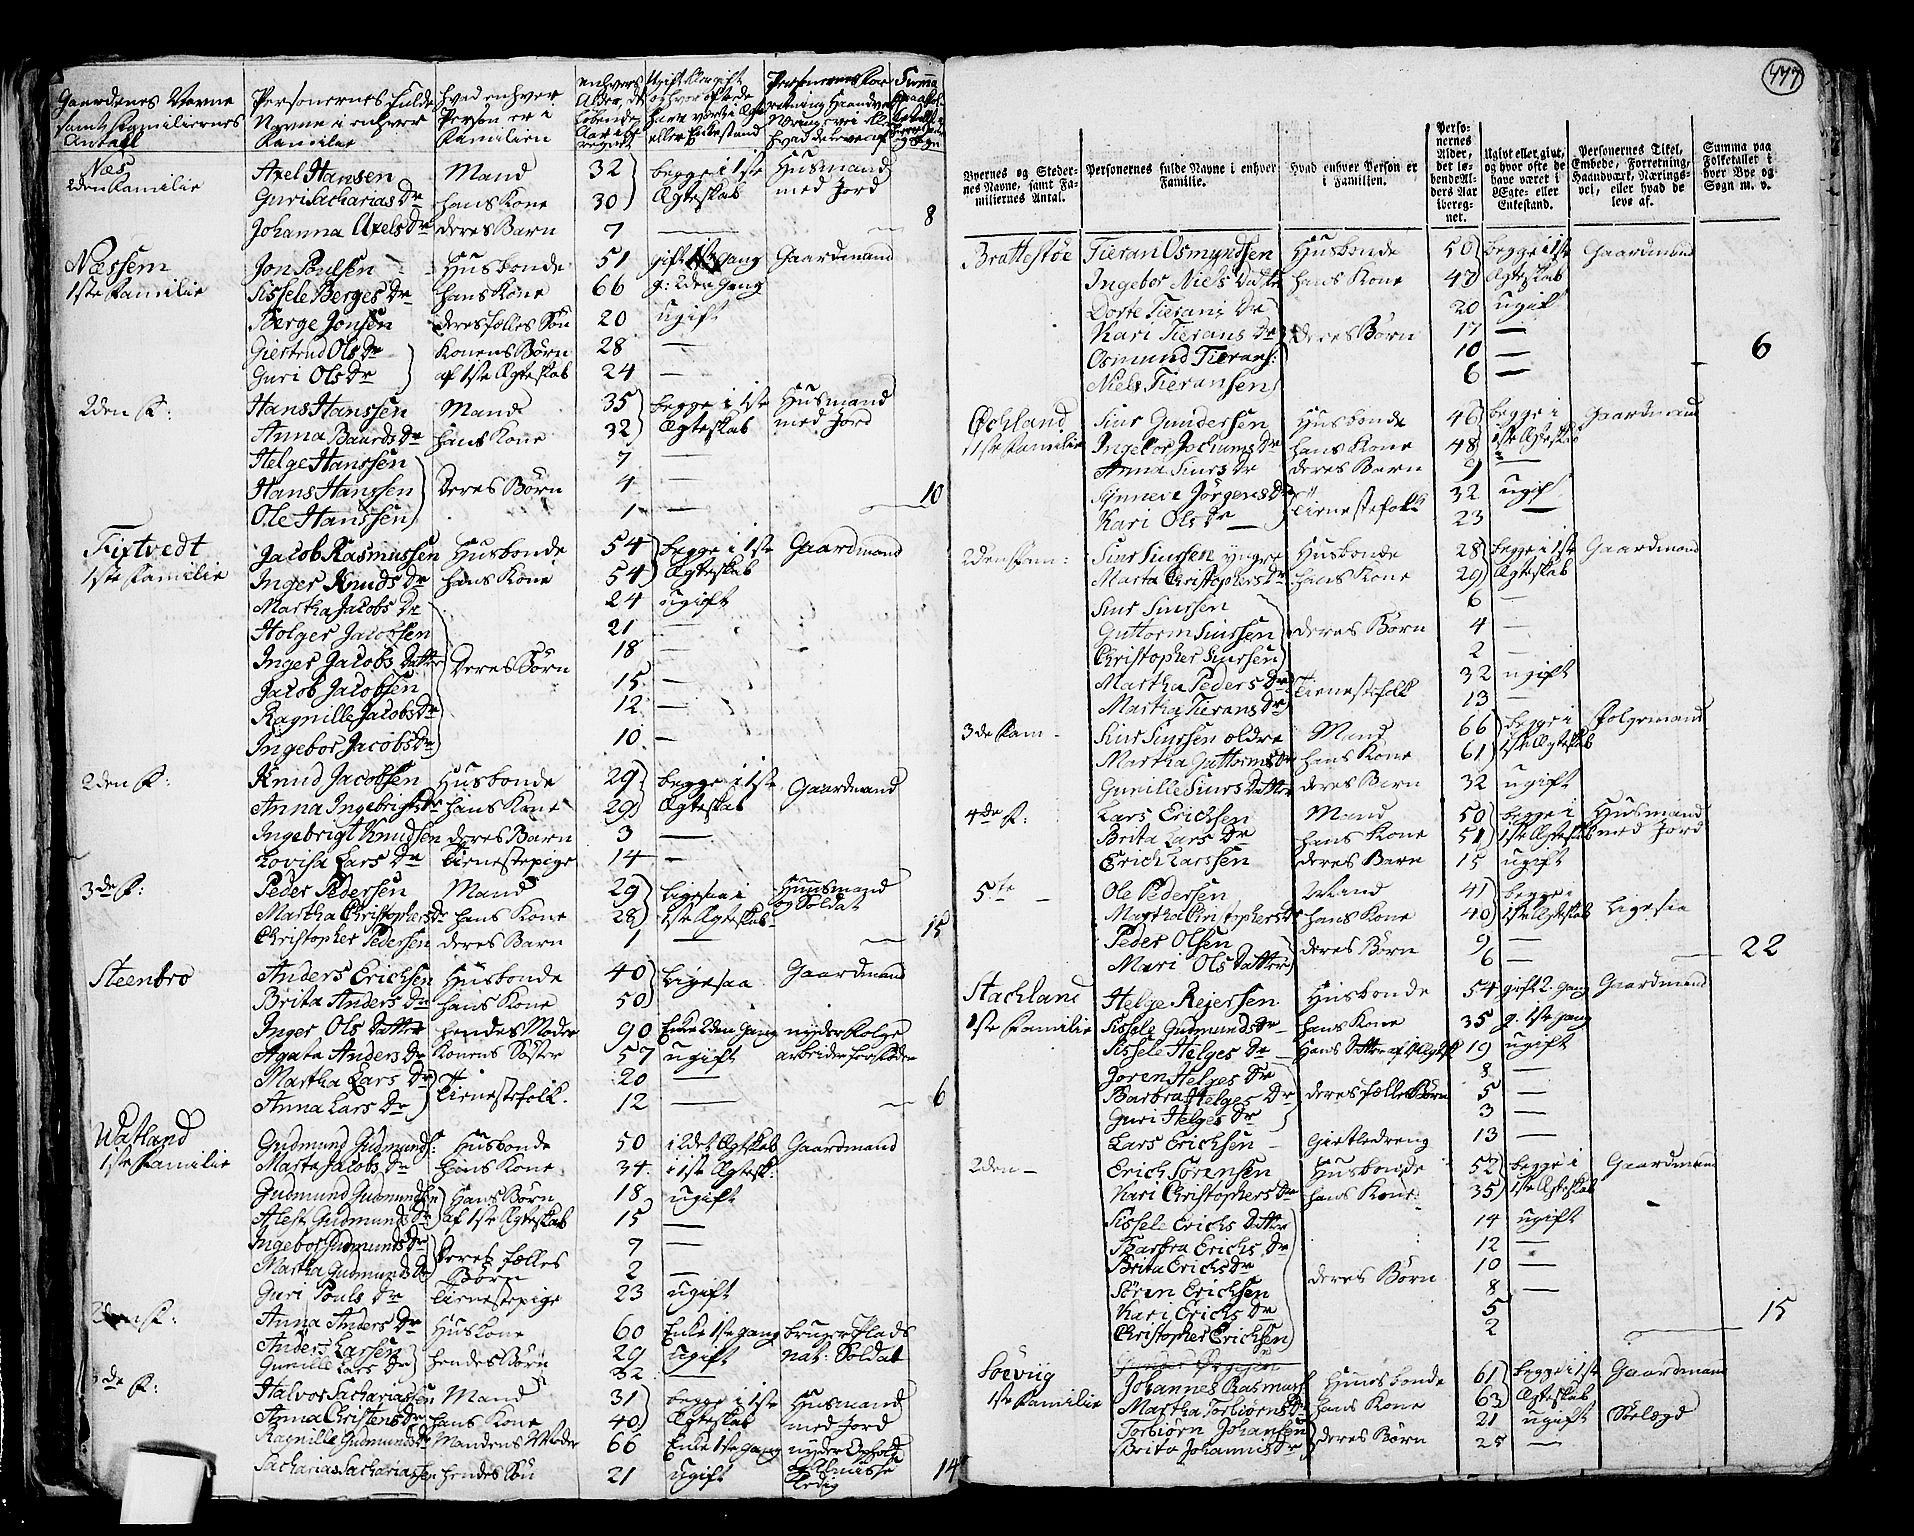 Gaardenes Navne samt Familiernes Antall | Personernes fulde Navne i enhver Familie | hvad enhver Person er i Familien | enhvers Alder, det løbende Aar iberegnet
Næs 2den Familie | Axel Hansen | Mand | 32 | begge i 1ste | Huusmand
Guri Sacharias Dr | hans Kone | 30 | Ægteskab | med Jord
Johanna Axels Dr | deres Barn | 7 | — | 8
Næssem | Jon Poulsen | Husbonde | 51 | gift 1ste Gang | Gaardmand
1ste Familie | Sissele Berges Dr | hans Kone | 66 | g: 2den Gang
Berge Jonsen | deres fælles Søn | 20 | ugift
Giertrud Ols Dr | Konens Børn | 28 | —
Guri Ols Dr | af 1ste Ægteskab | 24 | —
2den F: | Hans Hanssen | Mand | 35 | begge i 1ste | Husmand
Anna Baards Dr | hans Kone | 32 | Ægteskab | med Jord
Helge Hanssen | 7 | —
Hans Hanssen | Deres Børn | 4 | —
Ole Hanssen | 1 | — | 10
Fixtvedt | Jacob Rasmussen | Husbonde | 54 | begge i 1ste | Gaardmand
1ste Familie | Inger Knuds Dr | hans Kone | 54 | Ægteskab
Martha Jacobs Dr | 24 | ugift
Holger Jacobsen | 21 | —
Inger Jacobs Datter | Deres Børn | 18 | —
Jacob Jacobsen | 15 | —
Ragnille Jacobs Dr | 12 | —
Ingebor Jacobs Dr | 10 | —
2den F: | Knud Jacobsen | Husbonde | 29 | begge i 1ste | Gaardmand
Anna Ingebrigts Dr | hans Kone | 29 | Ægteskab
Ingebrigt Knudsen | deres Barn | 3 | —
Lovisa Lars Dr | Tienestepige | 14 | —
3de F: | Peder Pedersen | Mand | 29 | Ligesaa i | Huusmand
Martha Christophers Dr | hans Kone | 28 | 1ste Ægteskab | og Soldat
Christopher Pedersen | deres Barn | 1 | — | 15
Steenbro | Anders Erichsen | Husbonde | 40 | Ligesaa | Gaardmand
Brita Anders Dr | hans Kone | 50
Inger Ols Datter | hendes Moder | 90 | Enke 2den Gang | nyder Folge
Agata Anders Dr | Konens Søster | 57 | ugift | arbeider for Føden
Martha Lars Dr | Tienestefolk | 20 | —
Anna Lars Dr | 12 | — | 6
Watland | Gudmund Gudmunds: | Husbonde | 50 | i 2det Ægteskab | Gaardmand
1ste Familie | Marte Jacobs Dr | hans Kone | 34 | i 1ste Ægtesk:
Gudmund Gudmundsen | Hans Børn | 18 | ugift
Alest Gudmunds Dr | af 1ste Ægteskab | 15 | —
Ingebor Gudmunds Dr | Deres fælles | 7 | —
Martha Gudmunds Dr | Børn | 2 | —
Guri Pouls Dr | Tienestepige | 23 | ugift
2den F: | Anna Anders Dr | Huskone | 60 | Enke 1ste Gang | bruger Plads
Anders Larssen | hendes Børn | 29 | ugift | nat: Soldat
Gunille Lars Dr | 22 | —
3de F: | Halvor Sachariassen | Mand | 31 | begge i 1ste | Husmand
Anna Christens Dr | hans Kone | 40 | Ægteskab | med Jord
Ragnille Gudmunds Dr | Mandens Moder | 66 | Enke 1ste Gang | nyder Ophold
Sacharias Sachariassen | hendes Søn | 21 | ugift | 14
477
Byernes og Stedernes Navne, samt Familiernes Antal. | Personernes fulde Navne i enhver Familie. | Hvad enhver Person er i Familien. | Personernes Alder, det løbende Alders Aar iberegnet. | Ugivt eller givt, og hvor ofte de have været i Ægte- eller Enkestand. | Personernes Titel, Embede, Forretning, Haandværk, Næringsvei, eller hvad de leve af. | Summa paa Folketallet i hver Bye og Sogn m. v.
Brattestøe | Tieran Osmundsen | Husbonde | 50 | begge i 1ste | Gaardmand
Ingebor Niels Datter | hans Kone | 47 | Ægteskab
Dorte Tierans Dr | 20 | ugift
Kari Tierans Dr | deres Børn | 17 | —
Osmund Tierans: | 10 | — | 6
Niels Tieransen | 6 | —
Øchland | Siur Gundersen | Husbonde | 46 | begge i | Gaardmand
1ste Familie | Ingebor Jochums Dr | hans Kone | 48 | 1ste Ægteskab
Anna Siurs Dr | deres Barn | 9 | —
Synneve Jørgens Dr | Tienestefolk | 32 | ugift
Kari Ols Dr | 23 | —
2den Fam: | Siur Siurssen yngre | Husbonde | 28 | begge i 1ste | Gaardmand
Marta Christophers Dr | hans Kone | 29 | Ægteskab
Siur Siurssen | 6 | —
Guttorm Siurssen | deres Børn | 4 | —
Christopher Siurssen | 2 | —
Martha Peders Dr | Tienestefolk | 32 | ugift
Martha Tierans Dr | 13 | —
3de Fam | Siur Siurssen oldre | Mand | 66 | begge i | Folgemand
Martha Guttorms Dr | hans Kone | 61 | 1ste Ægteskab
Gunille Siurs Datter | deres Barn | 32 | ugift
4de F: | Lars Erichsen | Mand | 50 | begge i | Husmand
Brita Lars Dr | hans Kone | 51 | 1ste Ægteskab | med Jord
Erich Larssen | deres Barn | 15 | ugift
5te — | Ole Pedersen | Mand | 41 | begge i | Ligesaa
Martha Christophers Dr | hans Kone | 40 | 1ste Ægteskab
Peder Olsen | deres Børn | 9 | — | 22
Mari Ols Datter | 6 | —
Stachland | Helge Rejersen | Husbonde | 54 | gift 2. Gang | Gaardmand
1ste Familie | Sissele Gudmunds Dr | hans Kone | 35 | g. 1ste Gang
Sissele Helges Dr | 19 | ugift
Joren Helges Dr | 8 | —
Barbra Helges Dr | deres fælles Børn | 5 | —
Guri Helges Dr | 3 | —
Lars Erichsen | Gietledreng | 13 | —
2den — | Erich Sørensen | Husbonde | 52 | begge i | Gaardmand
Kari Christophers Dr | hans Kone | 35 | 1ste Ægteskab
Sissele Erichs Datter | 14 | ugift
Barbra Erichs Dr | 12 | —
Brita Erichs Dr | 10 | —
Søren Erichsen | deres Børn | 8 | —
Kari Erichs Dr | 5 | 15
Christopher Erichsen | 2
Søeviig | Johannes Rasmuss: | Huusbonde | 61 | begge i 1ste | Gaardmand
1ste Familie | Martha Torbiørns Dr | hans Kone | 63 | Ægteskab
Torbiørn Johansen | deres Børn | 21 | ugift | Søelægd
Brita Johannis Dr | 25 | —